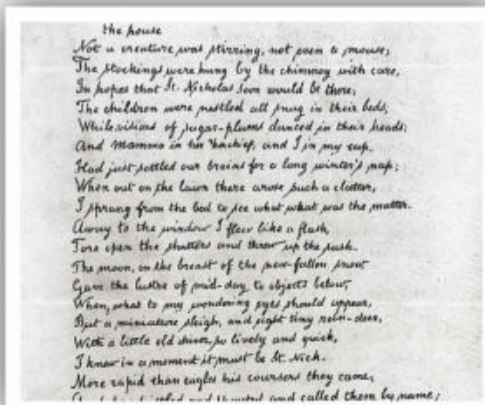 the house
Not a creature was stirring, not even a mouse;
The stockings were hung by the chimney with care,
In hopes that St. Nicholas soon would be there;
The children were nestled all snug in their beds,
While visions of sugar-plums danced in their heads;
And mamma in her 'kerchief, and I in my cap,
Had just settled our brains for a long winter's nap;
When out on the lawn there arose such a clatter,
I sprang from the bed to see what what was the matter.
Away to the window I flew like a flash,
Tore open the shutters and threw up the sash.
The moon, on the breast of the new-fallen snow
Gave the lustre of mid-day to objects below,
When, what to my wondering eyes should appear,
But a miniature sleigh, and eight tiny rein-deer,
With a little old driver, so lively and quick,
I knew in a moment it must be St. Nick.
More rapid than eagles his coursers they came,
And he whistled and shouted and called them by name;